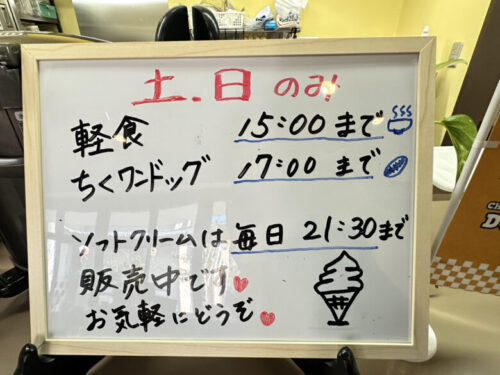 土.日のみ
軽食 15:00まで
ちくワンドッグ 17:00まで
ソフトクリームは毎日 21:30まで
販売中です
お気軽にどうぞ